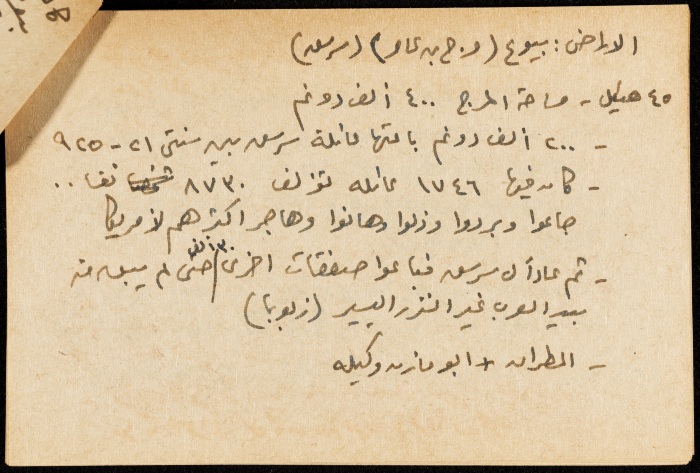 الاراضي: بيوع (مرج بن عامر) (سرسق)
٤٥ هيكل - مساحة المرج ٤٠٠ ألف دونم
- ٢٠٠ ألف دونم باعتها عائلة سرسق بين سنتي ٢١ - ٩٢٥
- كان فيها ١٧٤٦ عائلة تؤلف ٨٧٣٠ شخصا نفسا ..
جاعوا وبردوا وذلوا وهانوا وهاجر اكثرهم لأمريكا
- ثم عاد آل سرسق فباعوا صفقات اخرى ٣٠ الف حتى لم يبق منه
بيد العرب غير النزر اليسير (زبوبا)
- المطران + ابو مازن وكيله